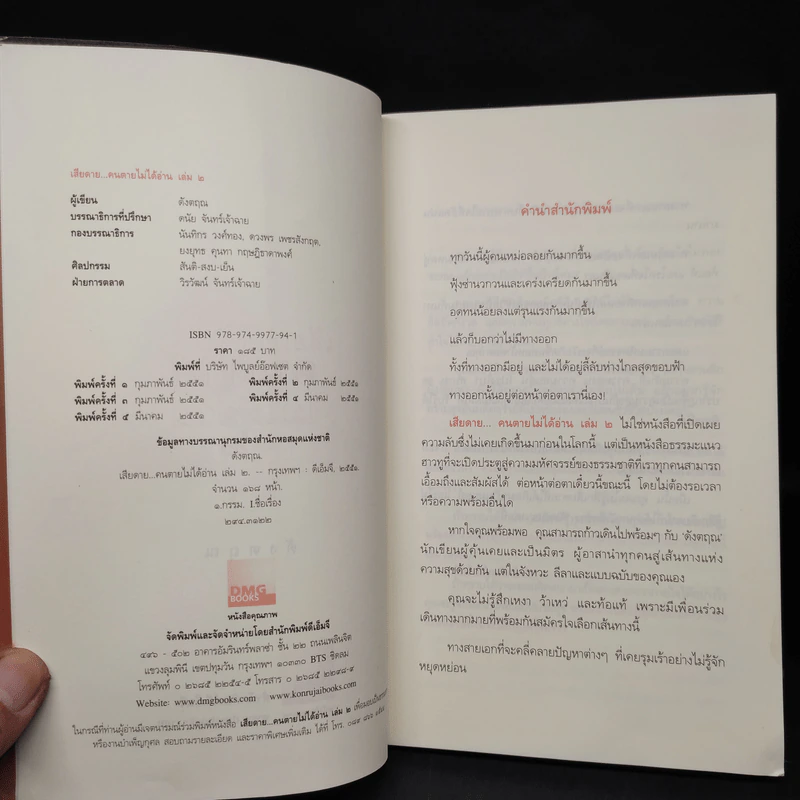 เสียดาย...คนตายไม่ได้อ่าน เล่ม ๒
ผู้เขียน ดังตฤณ
บรรณาธิการที่ปรึกษา ดนัย จันทร์เจ้าฉาย
กองบรรณาธิการ นันทิกร วงศ์ทอง, ดวงพร เพชรสังกฤต,
ยงยุทธ คุนทา กฤษฎิธาดาพงศ์
ศิลปกรรม สันติ-สงบ-เย็น
ฝ่ายการตลาด วิรวัฒน์ จันทร์เจ้าฉาย
ISBN 978-974-9977-94-1
ราคา ๑๘๕ บาท
พิมพ์ที่ บริษัท ไพบูลย์อ๊อฟเซต จำกัด
พิมพ์ครั้งที่ ๑ กุมภาพันธ์ ๒๕๕๑ พิมพ์ครั้งที่ ๒ กุมภาพันธ์ ๒๕๕๑
พิมพ์ครั้งที่ ๓ กุมภาพันธ์ ๒๕๕๑ พิมพ์ครั้งที่ ๔ มีนาคม ๒๕๕๑
พิมพ์ครั้งที่ ๕ มีนาคม ๒๕๕๑
ข้อมูลทางบรรณานุกรมของสำนักหอสมุดแห่งชาติ
ดังตฤณ.
เสียดาย...คนตายไม่ได้อ่าน เล่ม ๒. -- กรุงเทพฯ : ดีเอ็มจี. ๒๕๕๑.
จำนวน ๑๖๘ หน้า.
๑.กรรม. I.ชื่อเรื่อง
๒๙๔.๓๑๒๒
DMG
BOOKS
หนังสือคุณภาพ
จัดพิมพ์และจัดจำหน่ายโดยสำนักพิมพ์ดีเอ็มจี
๔๙๖ - ๕๐๒ อาคารอัมรินทร์พลาซ่า ชั้น ๒๒ ถนนเพลินจิต
แขวงลุมพินี เขตปทุมวัน กรุงเทพฯ ๑๐๓๓๐ BTS ชิดลม
โทรศัพท์ ๐ ๒๖๘๕ ๒๒๕๔-๕ โทรสาร ๐ ๒๖๘๕ ๒๒๙๘-๙
Website: www.dmgbooks.com www.konrujaibooks.com
ในกรณีที่ท่านผู้อ่านมีเจตนารมณ์ร่วมพิมพ์หนังสือ เสียดาย...คนตายไม่ได้อ่าน เล่ม ๒
หรืองานบำเพ็ญกุศล สอบถามรายละเอียด และราคาพิเศษเพิ่มเติม ได้ที่ โทร.
คำนำสำนักพิมพ์
ทุกวันนี้ผู้คนเหม่อลอยกันมากขึ้น
ฟุ้งซ่านวกวนและเคร่งเครียดกันมากขึ้น
อดทนน้อยลงแต่รุนแรงกันมากขึ้น
แล้วก็บอกว่าไม่มีทางออก
ทั้งที่ทางออกมีอยู่ และไม่ได้อยู่ลี้ลับห่างไกลสุดขอบฟ้า
ทางออกนั้นอยู่ต่อหน้าต่อตาเรานี่เอง!
เสียดาย... คนตายไม่ได้อ่าน เล่ม ๒ ไม่ใช่หนังสือที่เปิดเผย
ความลับซึ่งไม่เคยเกิดขึ้นมาก่อนในโลกนี้ แต่เป็นหนังสือธรรมะแนว
ฮาวทูที่จะเปิดประตูสู่ความมหัศจรรย์ของธรรมชาติที่เราทุกคนสามารถ
เอื้อมถึงและสัมผัสได้ ต่อหน้าต่อตาเดี๋ยวนี้ขณะนี้ โดยไม่ต้องรอเวลา
หรือความพร้อมอื่นใด
หากใจคุณพร้อมพอ คุณสามารถก้าวเดินไปพร้อมๆ กับ 'ดังตฤณ'
นักเขียนผู้คุ้นเคยและเป็นมิตร ผู้อาสานำทุกคนสู่เส้นทางแห่ง
ความสุขด้วยกัน แต่ในจังหวะ ลีลาและแบบฉบับของคุณเอง
คุณจะไม่รู้สึกเหงา ว้าเหว่ และท้อแท้ เพราะมีเพื่อนร่วม
เดินทางมากมายที่พร้อมกันสมัครใจเลือกเส้นทางนี้
ทางสายเอกที่จะคลี่คลายปัญหาต่างๆ ที่เคยรุมเร้าอย่างไม่รู้จัก
หยุดหย่อน